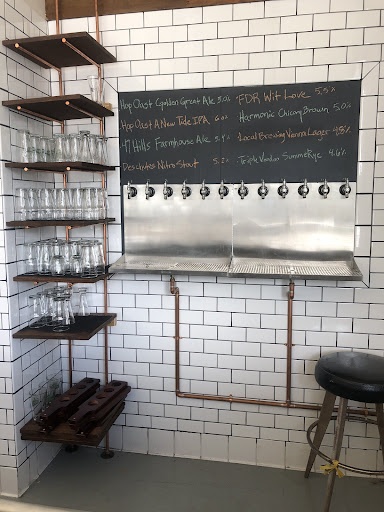 Hop Oast Golden Great Ale 5.0%
Hop Oast A New Tide IPA 6.0
47 Hills Farmhouse Ale 5.4%
Deschutes Nitro Stout 5.2%
FDR Wit Love 5.5%
Harmonic Chicory Brown 5.0%
Local Brewing Vienna Lager 4.8%
Triple Voodoo Summer Rye 4.6%